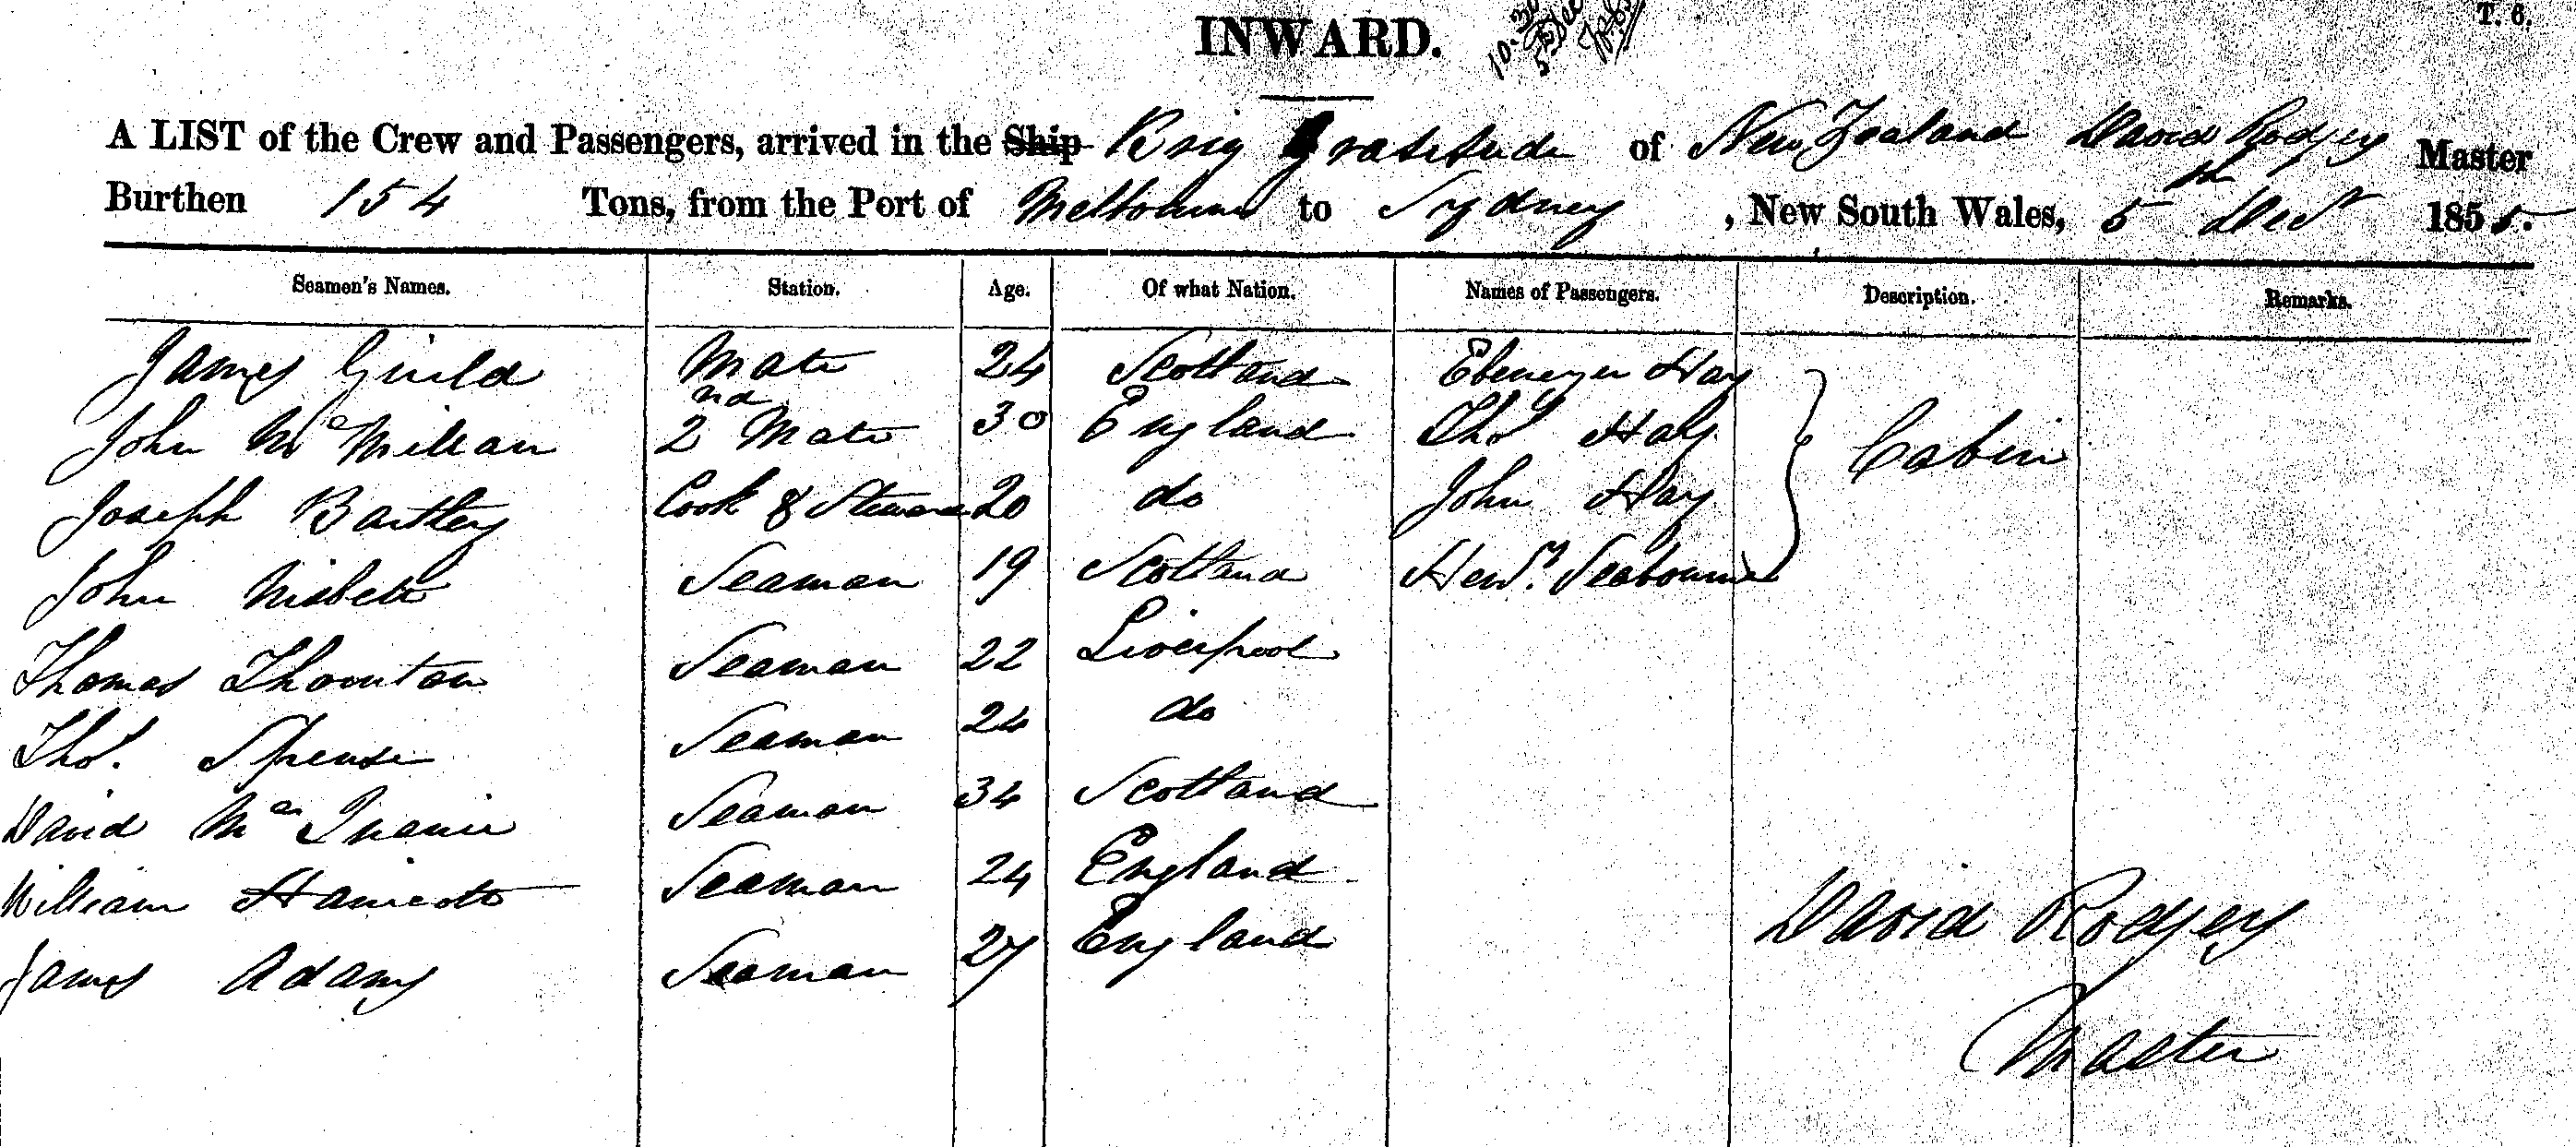 INWARD.
T. 6.
10.30
A LIST of the Crew and Passengers, arrived in the Ship Brig Gratitude of New Zealand David Rodgey Master
Burthen 154 Tons, from the Port of Melbourne to Sydney, New South Wales, 5th Decr 1855.
Seamen's Names. Station. Age. Of what Nation. Names of Passengers. Description. Remarks.
James Guild Mate 24 Scotland Ebenezer Hay
John Mc Millan 2nd Mate 30 England Thos Hay Cabin
Joseph Bartley Cook & Steward 20 do John Hay
John Nisbett Seaman 19 Scotland Seabourne
Thomas Thornton Seaman 22 Liverpool
Thos. Spense Seaman 24 do
David Seaman 34 Scotland
William Seaman 24 England
James Adams Seaman 27 England
David Rodgey
Master